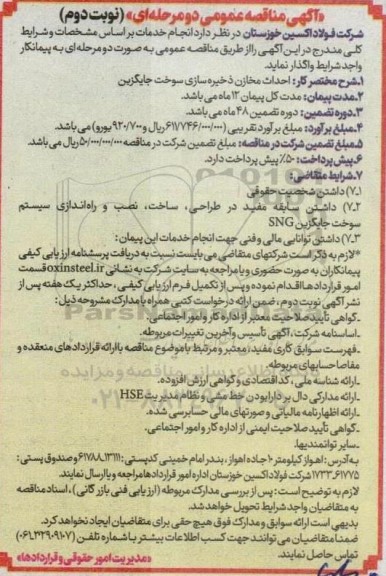 «آگهی مناقصه عمومی دو مرحله‌ای» (نوبت دوم)
شرکت فولاد اکسین خوزستان در نظر دارد انجام خدمات بر اساس مشخصات و شرایط
کلی مندرج در این آگهی را از طریق مناقصه عمومی به صورت دو مرحله ای به پیمانکار
واجد شرایط واگذار نماید.
۱.شرح مختصر کار: احداث مخازن ذخیره سازی سوخت جایگزین
۲.مدت پیمان: مدت کل پیمان ۱۲ ماه می باشد.
۳.دوره تضمین: دوره تضمین ۴۸ ماه می باشد.
۴.مبلغ برآورد: مبلغ برآورد تقریبی (۶۱۱/۷۴۶/۰۰۰/۰۰۰ ریال و ۹۲۰/۷۰۰ یورو) می باشد.
۵.مبلغ تضمین شرکت در مناقصه: مبلغ تضمین شرکت در مناقصه ۵۰/۰۰۰/۰۰۰/۰۰۰ ریال می باشد.
۶.پیش پرداخت: ۵۰٪ پیش پرداخت دارد.
۷.شرایط متقاضی:
۷.۱) داشتن شخصیت حقوقی
۷.۲) داشتن سابقه مفید در طراحی، ساخت، نصب و راه‌اندازی سیستم
سوخت جایگزین SNG
۷.۳) داشتن توانایی مالی و فنی جهت انجام خدمات این پیمان:
*لازم به ذکر است شرکتهای متقاضی می بایست نسبت به دریافت پرسشنامه ارزیابی کیفی
پیمانکاران به صورت حضوری و یا مراجعه به سایت شرکت به نشانی oxinsteel.ir قسمت
امور قراردادها اقدام نموده و پس از تکمیل فرم ارزیابی کیفی، حداکثر یک هفته پس از
نشر آگهی نوبت دوم، ضمن ارائه درخواست کتبی همراه با مدارک مشروحه ذیل:
.گواهی تأیید صلاحیت معتبر از اداره کار و امور اجتماعی.
.اساسنامه شرکت، آگهی تأسیس و آخرین تغییرات مربوطه.
.فهرست سوابق کاری مفید، معتبر و مرتبط با موضوع مناقصه با ارائه قراردادهای منعقده و
مفاصاحسابهای مربوطه.
.ارائه شناسه ملی، کد اقتصادی و گواهی ارزش افزوده.
.ارائه مدارکی دال بر دارا بودن خط مشی و نظام مدیریت HSE
.ارائه اظهارنامه مالیاتی و صورتهای مالی حسابرسی شده.
.گواهی تأیید صلاحیت ایمنی از اداره کار و امور اجتماعی.
.سایر توانمندیها.
به آدرس: اهواز کیلومتر ۱۰ جاده اهواز، بندر امام خمینی کدپستی: ۶۱۷۸۸.۱۳۱۱۱ و صندوق پستی:
۱۷۳۳.۶۱۷۷۵ شرکت فولاد اکسین خوزستان اداره امور قراردادها مراجعه و یا ارسال نمایند.
لازم به توضیح است: پس از بررسی مدارک مربوطه (ارزیابی فنی بازرگانی)، اسناد مناقصه
به متقاضیان واجد شرایط تحویل خواهد شد.
بدیهی است ارائه سوابق و مدارک فوق هیچ حقی برای متقاضیان ایجاد نخواهد کرد.
ضمناً متقاضیان می توانند جهت کسب اطلاعات بیشتر با شماره تلفن (۰۶۱.۳۲۹۰۹۱۰۷)
تماس حاصل نمایند.
«مدیریت امور حقوقی و قراردادها»